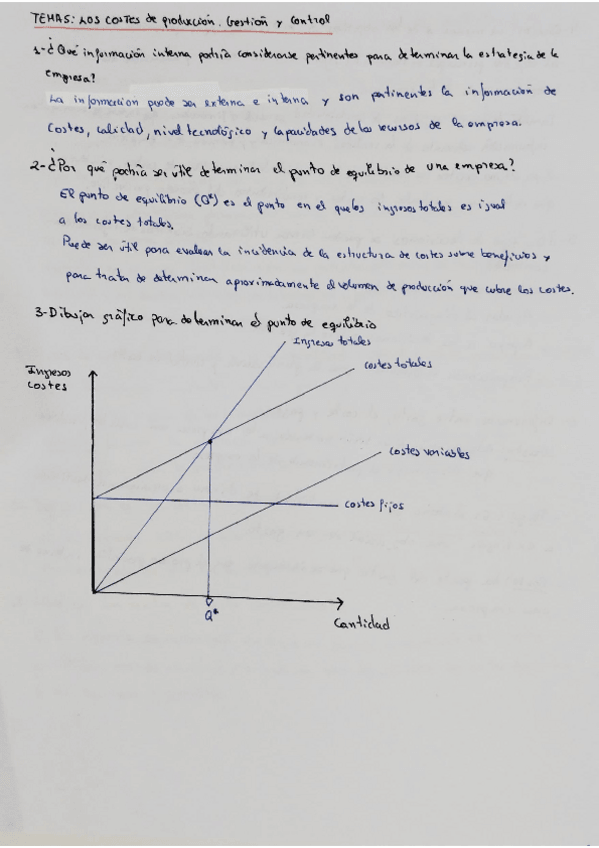 TEMA5: LOS COSTES de producción. Gestión y control
1-¿Qué información interna podría considerarse pertinentes para determinar la estrategia de la
empresa?
La información puede ser externa e interna y son pertinentes la información de
costes, calidad, nivel tecnológico y capacidades de los recursos de la empresa.
2-¿Por qué podría ser útil determinar el punto de equilibrio de una empresa?
El punto de equilibrio (Q*) es el punto en el que los ingresos totales es igual
a los costes totales.
Puede ser útil para evaluar la incidencia de la estructura de costes sobre beneficios y
para tratar de determinar aproximadamente el volumen de producción que cubre los costes.
3-Dibujar gráfico para determinar el punto de equilibrio
Ingresos totales
Costes totales
Ingresos
costes
Costes variables
Costes fijos
Q*
Cantidad